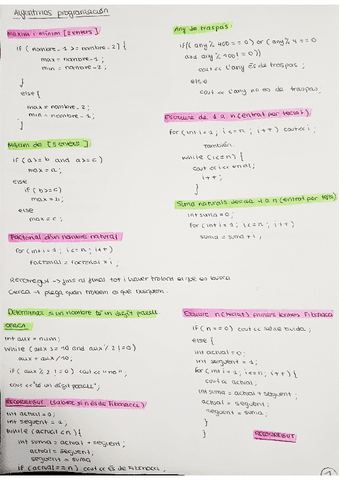 Algoritmes programación
Màxim i mínim [2 enters]
if ( nombre-1 >= nombre-2 ) {
max = nombre-1 ;
min = nombre-2 ;
}
else {
max = nombre-2 ;
min = nombre-1 ;
}
Màxim de [3 enters]
if (a>=b and a>=c)
max = a ;
else
if (b>=c)
max = b ;
else
max = c ;
Factorial d'un nombre natural
for (int i=1 ; i<=n ; i++)
factorial = factorial * i ;
Any de traspàs
if ((any % 400 == 0) or (any % 4 == 0
and any % 100 != 0))
cout << L'any és de traspàs ;
else
cout << L'any no és de traspàs
Escriure de 1 a n (entrat per teclat)
for (int i=1 ; i<=n ; i++) cout << i ;
també
while (i<=n) {
cout << i << endl ;
i++ ;
}
Suma naturals des de 1 a n (entrat per teclat)
int suma = 0 ;
for (int i=1 ; i<=n ; i++)
suma = suma + i ;
Recorregut → fins al final tot i haver trobat el que es busca
Cerca → plega quan trobem el que busquem
Determinar si un nombre té un dígit parell
CERCA
int aux = num ;
while (aux >= 10 and aux % 2 != 0)
aux = aux/10 ;
if (aux % 2 != 0) cout << "no" ;
cout << "té un dígit parell" ;
RECORREGUT (saber si n és de Fibonacci)
int actual = 0 ;
int seguent = 1 ;
while (actual < n) {
int suma = actual + seguent ;
actual = seguent ;
seguent = suma
if (actual == n) cout << és de Fibonacci ;
Escriure n (teclat) primers termes Fibonacci
if (n==0) cout <<
else {
int actual = 0 ;
int seguent = 1 ;
for (int i=1 ; i<=n ; i++) {
cout << actual ;
int suma = actual + seguent ;
actual = seguent ;
seguent = suma ;
}
}
RECORREGUT
1